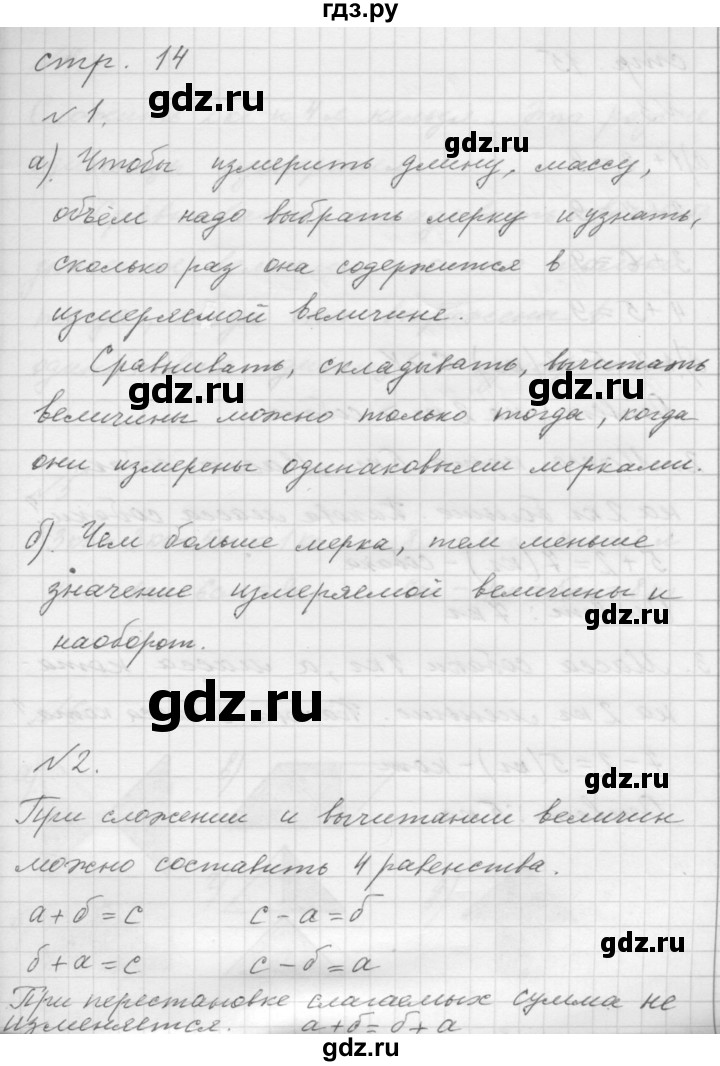 гдз.ру
стр. 14
gdz.ru
№ 1.
gdz.ru
а). Чтобы измерить длину, массу,
объём надо выбрать мерку и узнать,
gdz.ru
сколько раз она содержится в
gdz.ru
измеряемой величине.
Сравнивать, складывать, вычитать
gdz.ru
gdz.ru
величины можно только тогда, когда
они измерены одинаковыми мерками.
б). Чем больше мерка, тем меньше
значение измеряемой величины и
gdz.ru
наоборот.
gdz.ru
№ 2.
gdz.ru
При сложении и вычитании величин
можно составить 4 равенства.
а + б = с с - а = б
gdz.ru
б + а = с с - б = а
При перестановке слагаемых сумма не
изменяется. а + б = б + а
gdz.ru